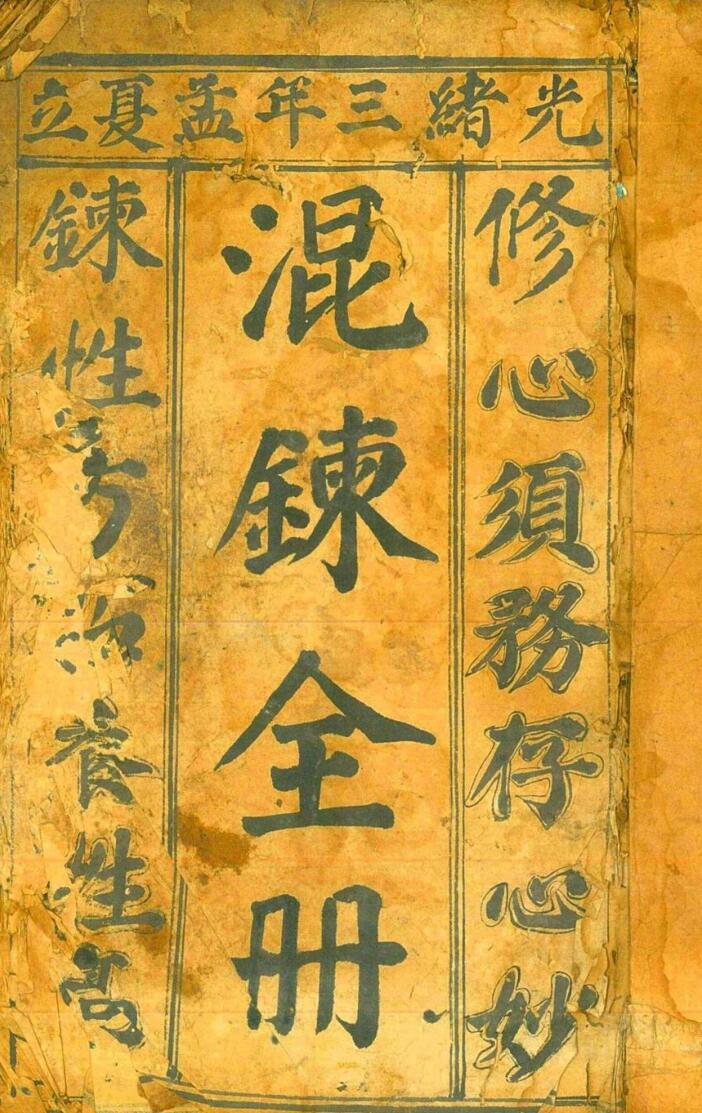 光緒三年孟夏立
修心須務存心妙
混鍊全冊
鍊性養性高